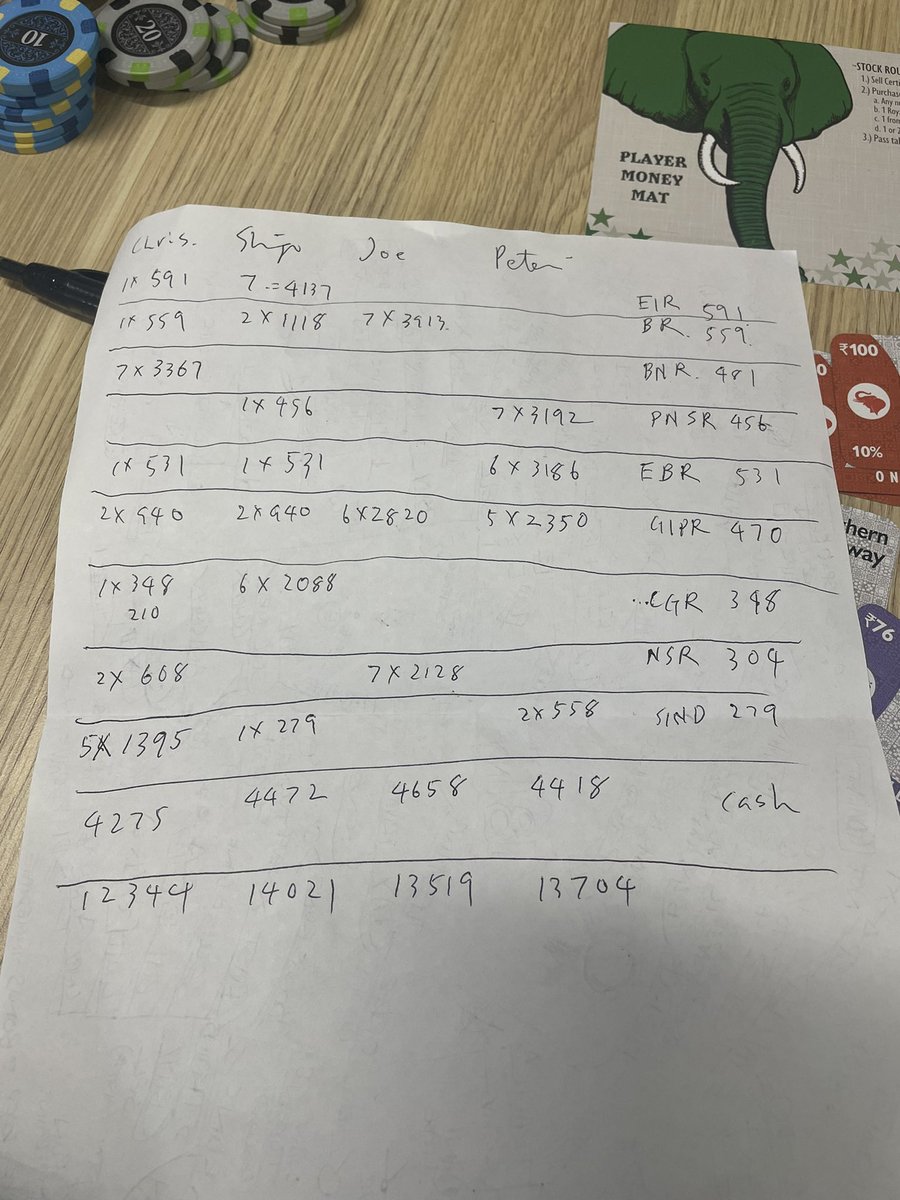 10
20
-STOCK ROU
1.) Sell Certi
2.) Purchas
a. Any nu
b. 1 Roy
c. 1 from
d. 1 or 2
3.) Pass ta
PLAYER
MONEY
MAT
Chris. Shigo Joe Peter
1x 591 7 .=4137 EIR 591
1x 559 2 x 1118 7 x 3913 BR. 559.
7 x 3367 BNR. 481
1x 456 7x3192 PNSR 456
1x 531 1x 531 6 x 3186 EBR 531
2x 940 2x 940 6x2820 5 x 2350 GIPR 470
1x 348 6 x 2088 CGR 348
210
2x 608 7 x 2128 NSR 304
5x 1395 1x 279 2x 558 SIND 279
4275 4472 4658 4418 Cash
12344 14021 13519 13704
₹100
10%
0 N
hern
way
₹76